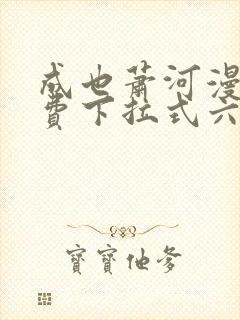 成也萧河漫
费下拉式六
寶寶他爹